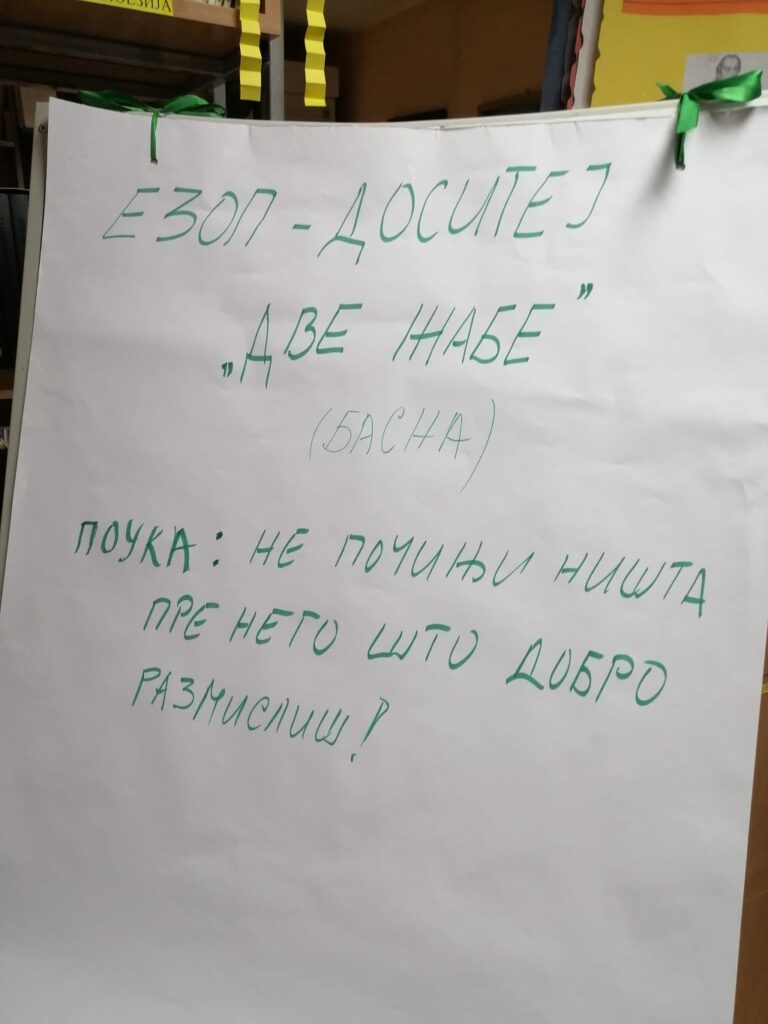 ПОЕЗИЈА
ЕЗОП - ДОСИТЕЈ
„ДВЕ ЖАБЕ”
(БАСНА)
ПОУКА: НЕ ПОЧИЊИ НИШТА
ПРЕ НЕГО ШТО ДОБРО
РАЗМИСЛИШ!